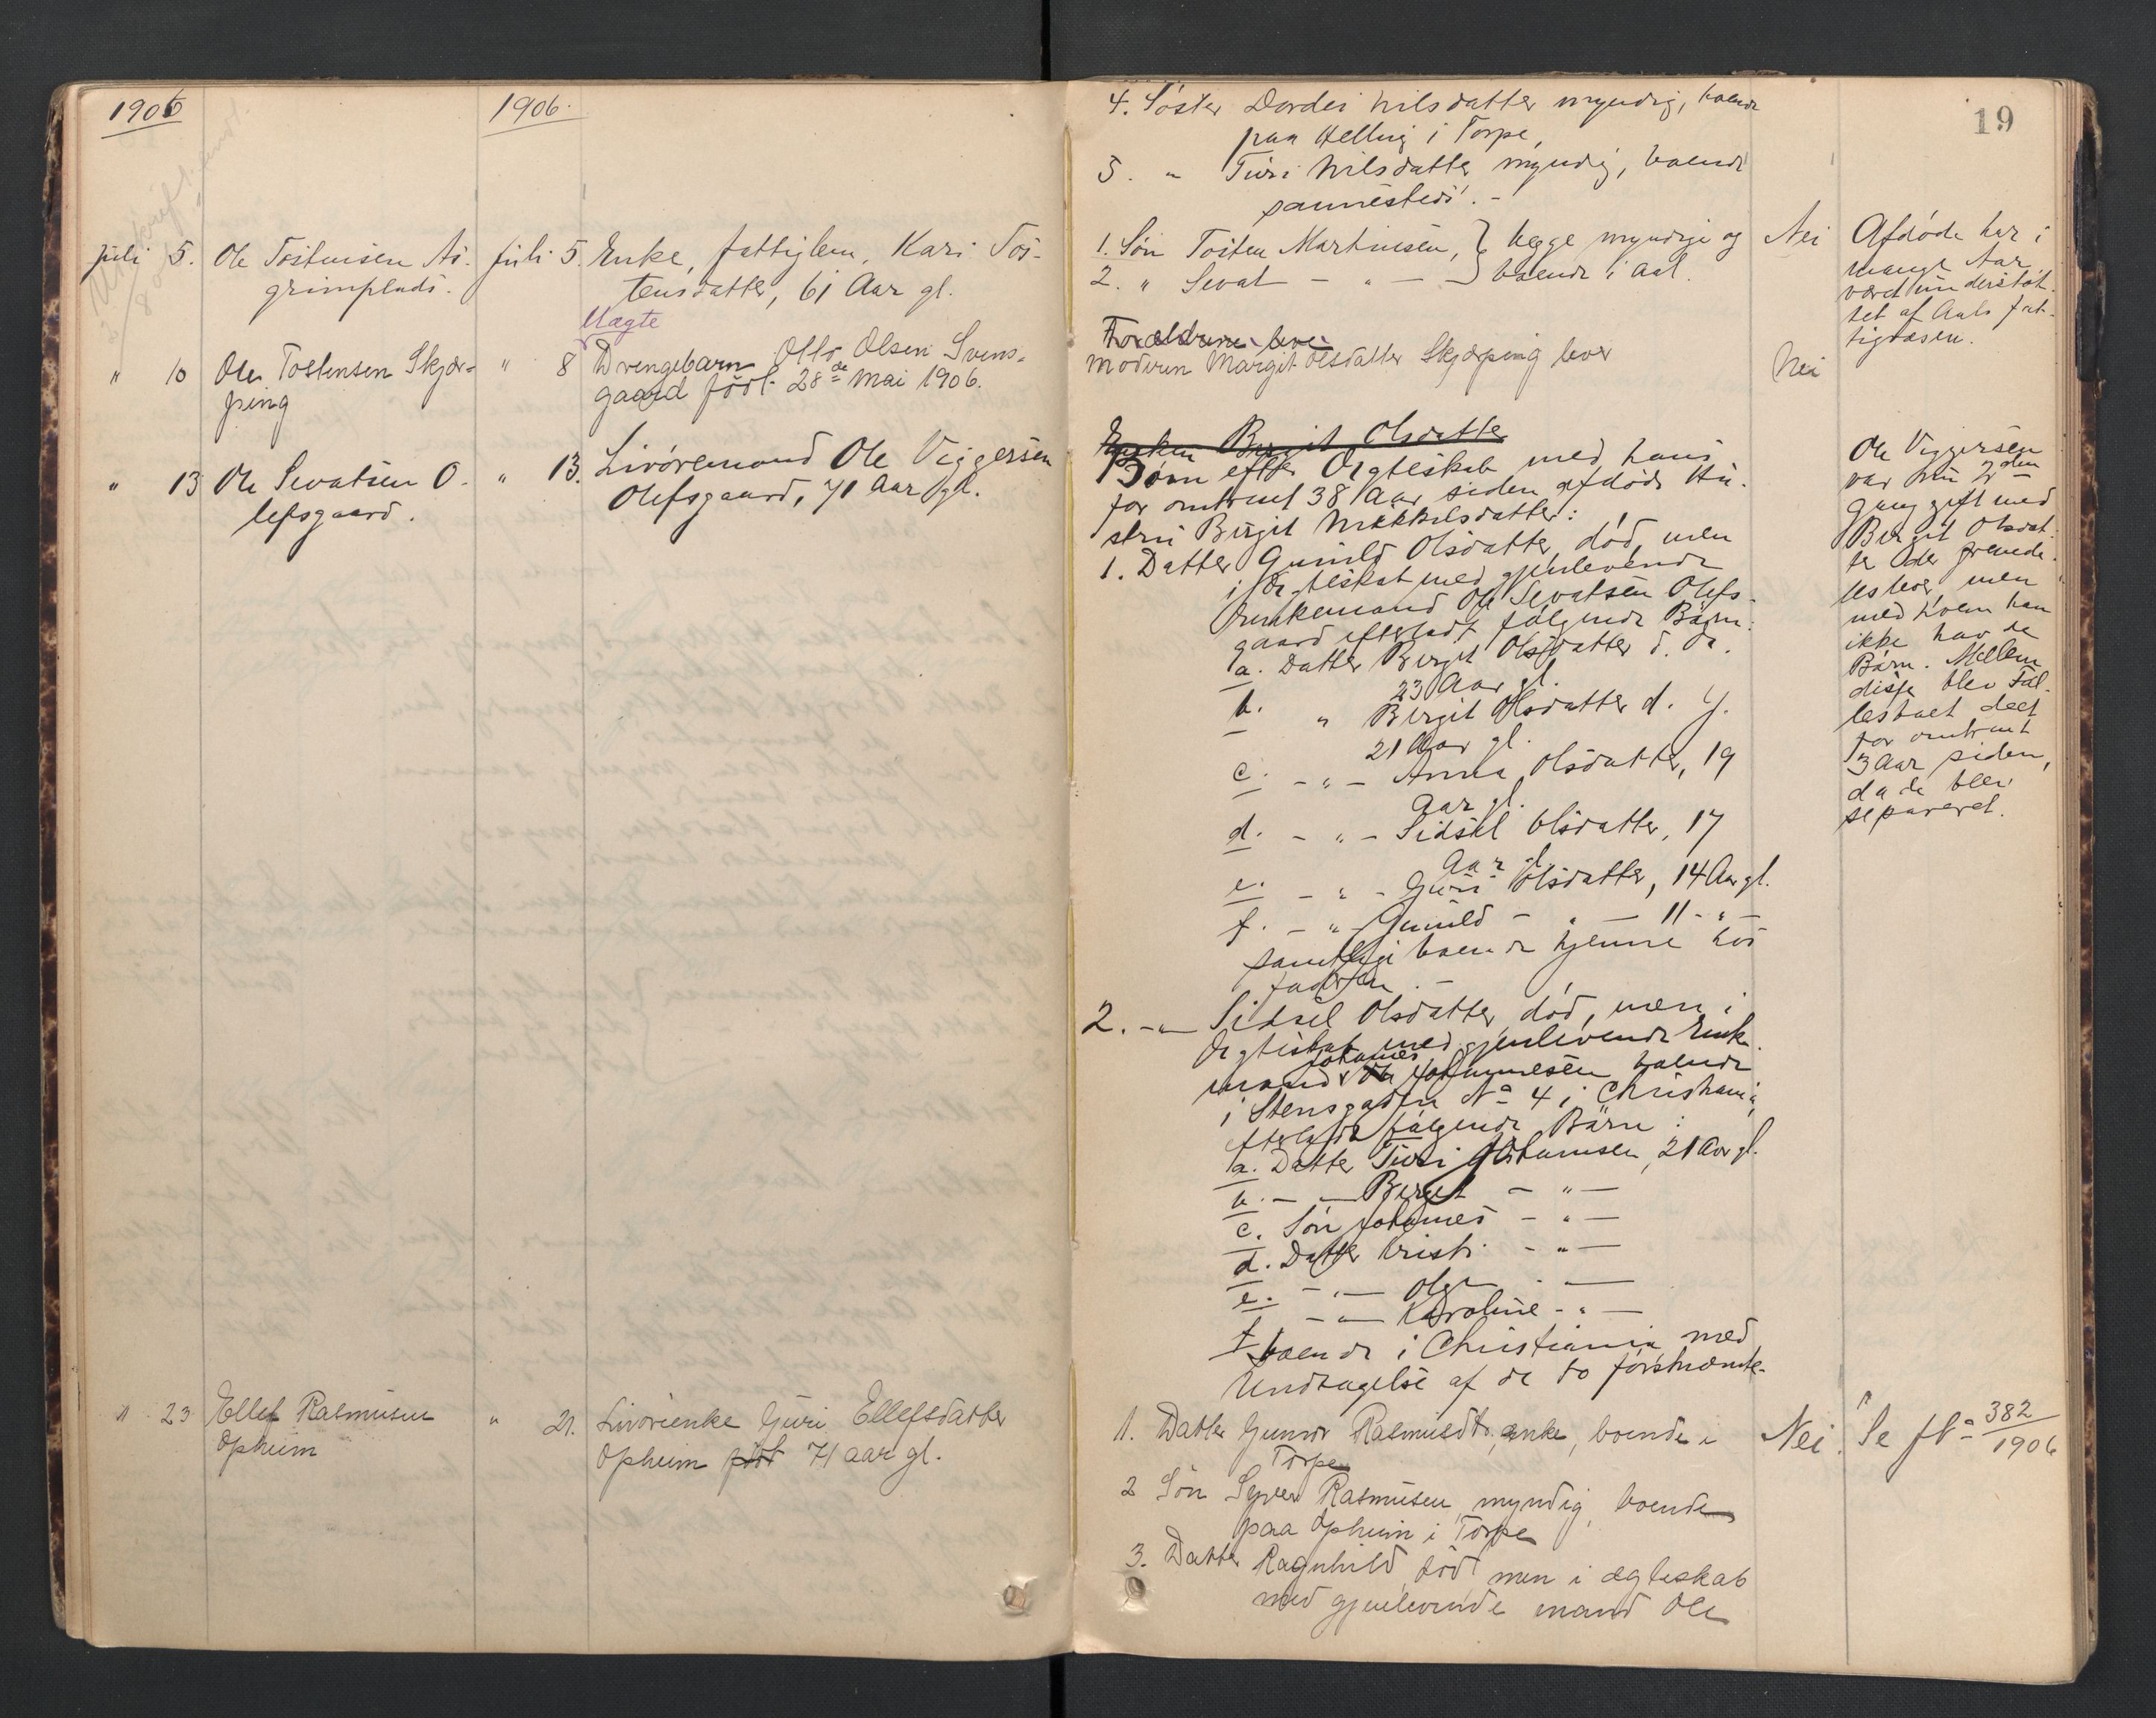 1906
1906.
Juli 5. Ole Tostensen As-
grimplads.
Juli 5. Enke, fattiglem, Kari Tos-
tensdatter, 61 Aar gl.
" 10 Ole Tostensen Skjær-
ping
Uægte
" 8 Drengebarn Otto Olsen Svens-
gaard født 28de Mai 1906.
" 13 Ole Sevatsen O-
lefsgaard.
" 13. Livøremand Ole Viggersen
Olefsgaard, 71 Aar gl.
" 23 Ellef Rasmusen
Opheim
" 21. Livørienke Guri Ellefsdatter
Opheim født 71 aar gl.
19
4. Søster Dordei Nilsdatter myndig, boende
paa Helling i Torpe,
5. " Turi Nilsdatter myndig, boende
sammesteds. -
1. Søn Tosten Martinsen, } begge myndige og
2. " Sevat - " - } boende i Aal.
Nei
Afdøde har i
mange Aar
været understøt-
tet af Aals fat-
tigvæsen.
Forældrene lever
moderen Margit Olsdatter Skjærping lever
Nei
Enken Birgit Olsdatter
Børn efter Ægteskab med hans
for omtrent 38 Aar siden afdøde Hu-
stru Birgit Mikkelsdatter:
1. Datter Gunild Olsdatter, død, men
i Ægteskab med gjenlevende
Enkemand Ole Sevatsen Olefs-
gaard efterladt følgende Børn:
a. Datter Birgit Olsdatter d. æ.
23 Aar gl.
b. " Birgit Olsdatter d. y.
21 Aar gl.
c. - " - Anna Olsdatter, 19
Aar gl.
d. - " - Sidsel Olsdatter, 17
Aar gl.
e. - " - Guri Olsdatter, 14 Aar gl.
f. - " - Gunild - " - 11 - " -
samtlige boende hjemme hos
faderen. -
2. - " - Sidsel Olsdatter, død, men i
Ægteskab med gjenlevende Enke-
Johannes
mand Ole Johannesen boende
i Stensgaden No 4 i Christiania,
efterladt følgende Børn:
a. Datter Turi Johannsen, 21 Aar gl.
b. - " - Birgit - " -
c. Søn Johannes - " -
d. Datter Kristi - " -
e. - " - Olga - " -
f. - " - Karoline - " -
boende i Christiania med
Undtagelse af de to førstnævnte.
Ole Viggersen
var nu 2den
Gang gift med
Birgit Olsdat-
ter der fremde-
les lever, men
med hvem han
ikke havde
Børn. Mellem
disse blev Fæl-
lesboet delt
for omtrent
3 Aar siden,
da de blev
separeret.
1. Datter Gunvor Rasmusdt., enke, boende i
Torpe
2 Søn Syver Rasmusen, myndig, boende
paa Opheim i Torpe
3. Datter Ragnhild, død men i ægteskab
med gjenlevende mand Ole
Nei.
Se No 382/1906